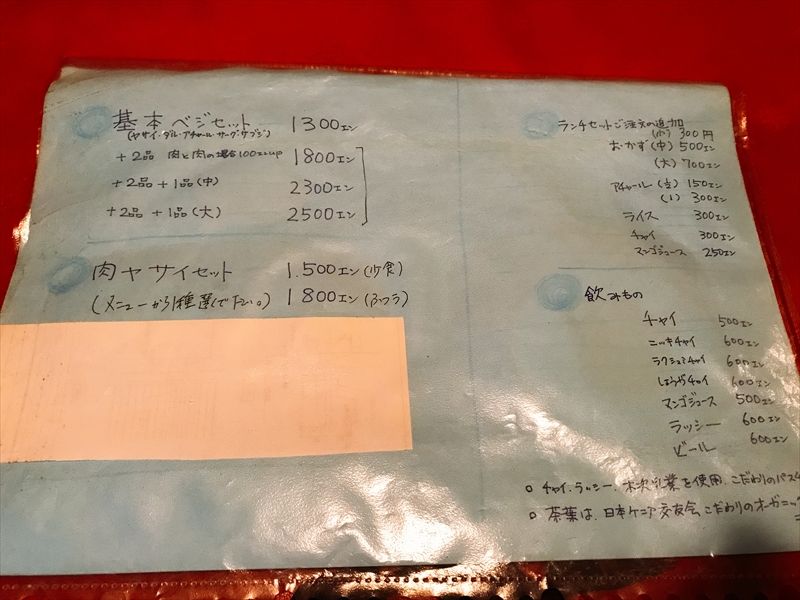 基本 ベジセット 1300エン
(ヤサイ・ダル・アチャール・サーグ・サブジ)
+2品 肉と肉の場合100エンup 1800エン
+2品+1品(中) 2300エン
+2品+1品(大) 2500エン
肉ヤサイセット 1.500エン(少食)
(メニューから1種選んで下さい。) 1800エン(ふつう)
ランチセットご注文の追加
(小) 300円
おかず(中) 500エン
(大) 700エン
アチャール(½) 150エン
(1) 300エン
ライス 300エン
チャイ 300エン
マンゴジュース 250エン
飲みもの
チャイ 500エン
ニッキチャイ 600エン
ラクシュミチャイ 600エン
しょうがチャイ 600エン
マンゴジュース 500エン
ラッシー 600エン
ビール 600エン
○ チャイ、ラッシー、木次乳業を使用、こだわりのパスチ
○ 茶葉は、日本ケニア交友会、こだわりのオーガニッ